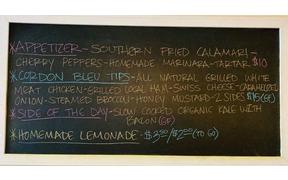 *APPETIZER-SOUTHERN FRIED CALAMARI-
CHERRY PEPPERS-HOMEMADE MARINARA-TARTAR $10
*CORDON BLEU TIPS-ALL NATURAL GRILLED WHITE
MEAT CHICKEN-GRILLED LOCAL HAM-SWISS CHEESE-CARAMELIZED
ONION-STEAMED BROCCOLI-HONEY MUSTARD-2 SIDES $15(GF)
*SIDE OF THE DAY-SLOW COOKED ORGANIC KALE WITH
BACON(GF)
*HOMEMADE LEMONADE-$3.00/$2.00(TO GO)